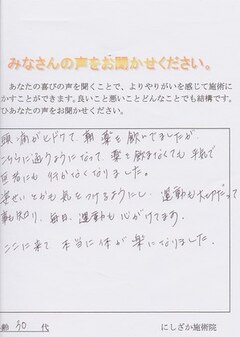 みなさんの声をお聞かせください。
あなたの喜びの声を聞くことで、よりやりがいを感じて施術に
かすことができます。良いこと悪いことどんなことでも結構です。
ひあなたの声をお聞かせください。
頭痛がヒドくて、朝 薬を飲んでましたが、
こちらに通うようになって 薬を飲まなくても 平気で
医者にも 行かなくなりました。
姿せいとかも気をつけるようにし、運動も大切だって
事も知り、毎日、運動も心がけてます。
ここに来て 本当に体が楽になりました。
齢 30 代
にしざか施術院